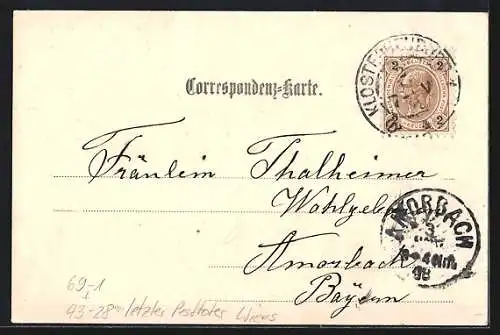 Correspondenz-Karte.
2 2
2 2
KLOSTERNEUBURG
Fräulein Thalheimer
Wohlgeb
Amorbach
Bayern
AMORBACH
3
98
69-1
43-28 letzter Postkoter Wiens